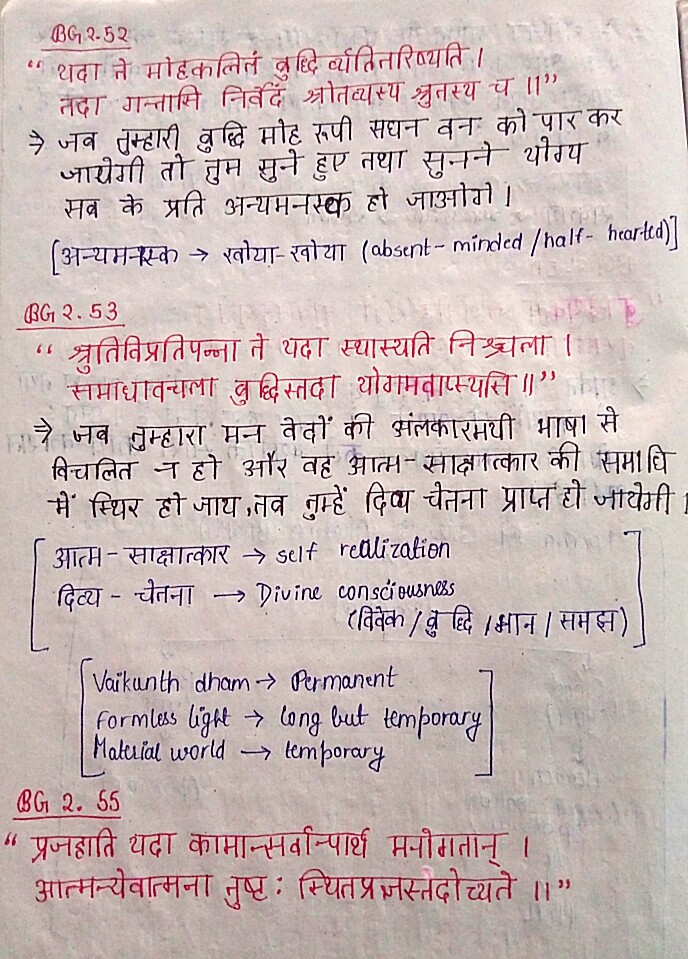 BG 2.52
“ यदा ते मोहकलितं बुद्धि र्व्यतितरिष्यति ।
तदा गन्तासि निर्वेदं श्रोतव्यस्य श्रुतस्य च ॥”
⇒ जब तुम्हारी बुद्धि मोह रूपी सघन वन को पार कर
जायेगी तो तुम सुने हुए तथा सुनने योग्य
सब के प्रति अन्यमनस्क हो जाओगे ।
[अन्यमनस्क → खोया-खोया (absent-minded/half-hearted)]
BG 2.53
“ श्रुतिविप्रतिपन्ना ते यदा स्थास्यति निश्चला ।
समाधावचला बुद्धिस्तदा योगमवाप्स्यसि ॥”
⇒ जब तुम्हारा मन वेदों की अंलकारमयी भाषा से
विचलित न हो और वह आत्म-साक्षात्कार की समाधि
में स्थिर हो जाय, तब तुम्हें दिव्य चेतना प्राप्त हो जायेगी ।
[आत्म-साक्षात्कार → self realization
दिव्य-चेतना → Divine consciousness
(विवेक/बुद्धि/भान/समझ)]
[Vaikunth dham → Permanent
Formless light → long but temporary
Material world → temporary]
BG 2.55
“ प्रजहाति यदा कामान्सर्वान्पार्थ मनोगतान् ।
आत्मन्येवात्मना तुष्टः स्थितप्रज्ञस्तदोच्यते ॥”